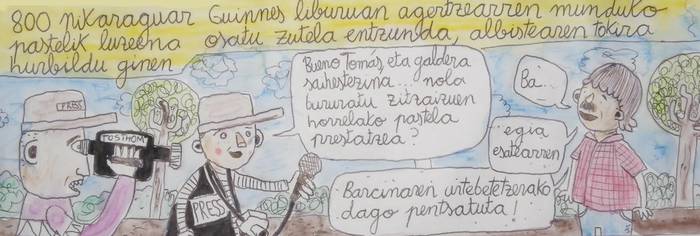 800 pikaraguar Guinnes liburuan agertzearren munduko
pastelik luzeena osatu zutela entzunda, albistearen tokira
hurbildu ginen
PRESS
TOSIHOM
NTT
PRESS
Bueno Tomás eta galdera
saihestezina... nola
bururatu zitzaizuen
horrelako pastela
prestatzea?
Ba...
egia
esatearren
Barcinaren urtebetetzerako
dago pentsatuta!